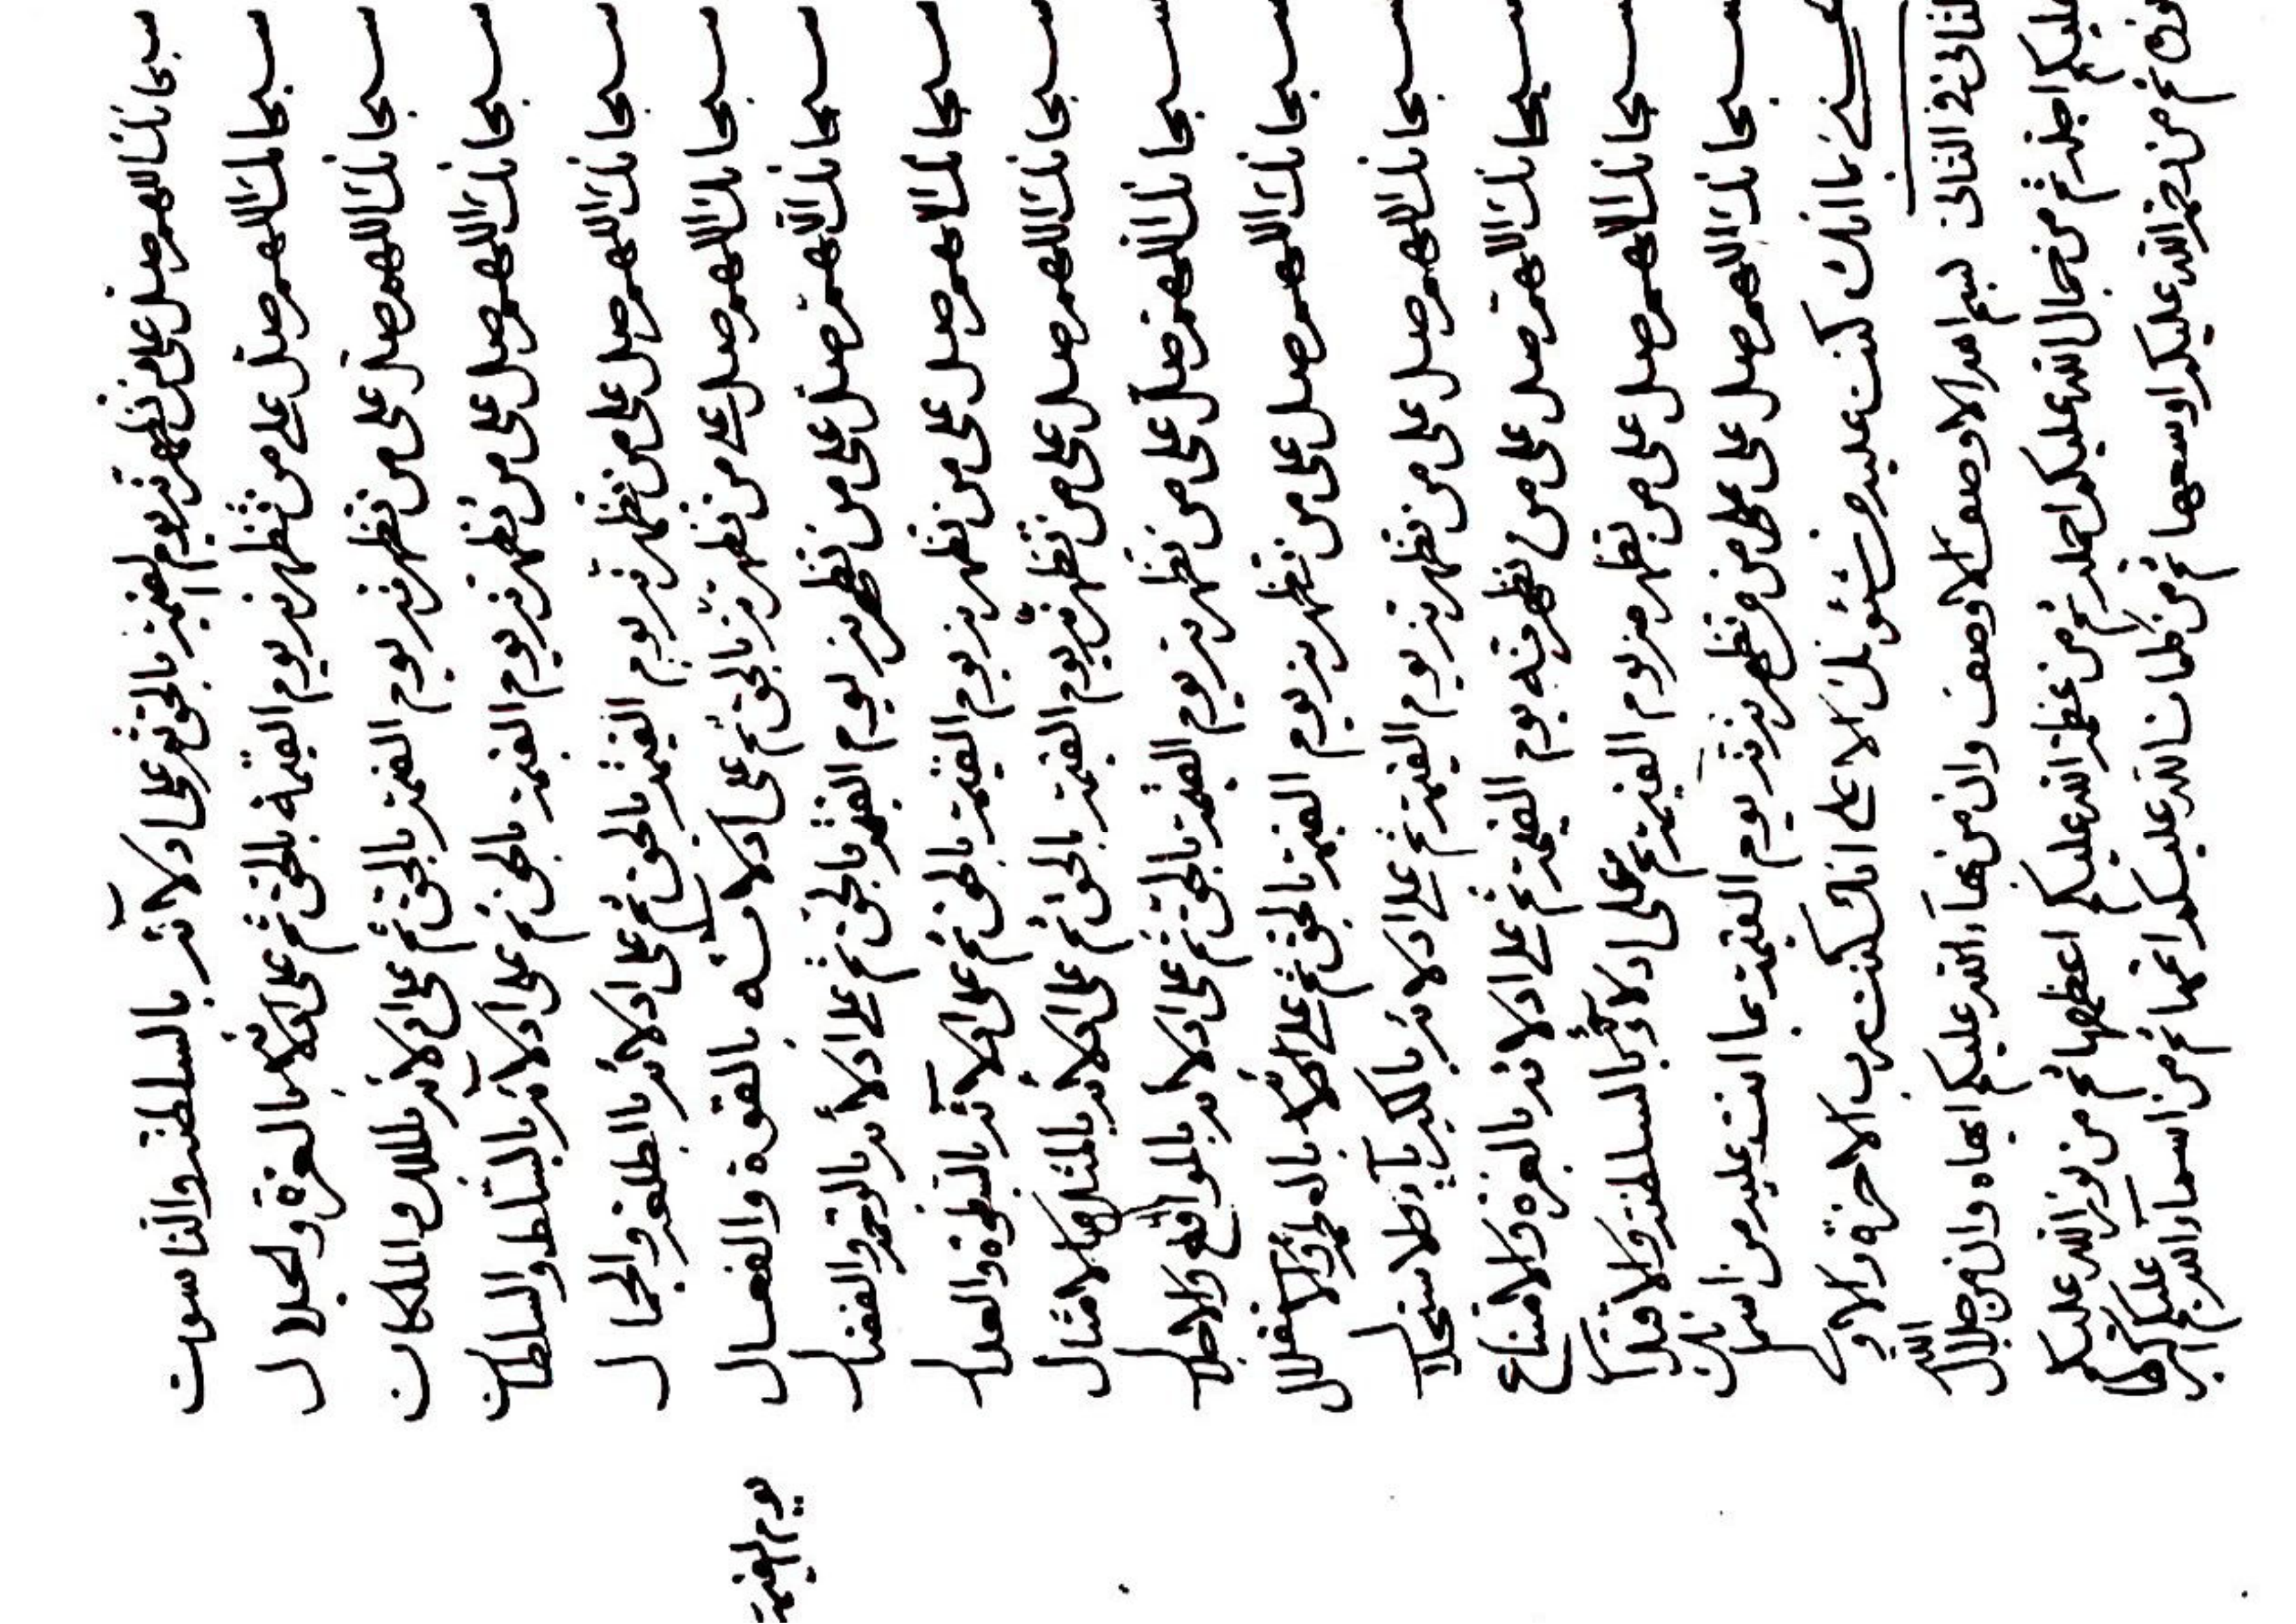 سبحانك اللهم صل على من تظهرنه يوم القيمة بالحق ثم على ادلائه بالسلطنة والناسوت
سبحانك اللهم صل على من تظهرنه يوم القيمة بالحق ثم على ادلائه بالعزة والجلال
سبحانك اللهم صل على من تظهرنه يوم القيمة بالحق ثم على ادلائه بالملك والملكات
سبحانك اللهم صل على من تظهرنه يوم القيمة بالحق ثم على ادلائه بالتسلط والسلطات
سبحانك اللهم صل على من تظهرنه يوم القيمة بالحق ثم على ادلائه بالطلعة والجمال
سبحانك اللهم صل على من تظهرنه بالحق ثم على ادلائه بالقوة والفعال
يوم القيمة
سبحانك اللهم صل على من تظهرنه يوم القيمة بالحق ثم على ادلائه بالرحمة والفضال
سبحانك اللهم صل على من تظهرنه يوم القيمة بالحق ثم على ادلائه بالسطوة والعدال
سبحانك اللهم صل على من تظهرنه يوم القيمة بالحق ثم على ادلائه بالمثل والامثال
سبحانك اللهم صل على من تظهرنه يوم القيمة بالحق ثم على ادلائه بالمواقع والاجلال
سبحانك اللهم صل على من تظهرنه يوم القيمة بالحق ثم على ادلائه والاستقلال
سبحانك اللهم صل على من تظهرنه يوم القيمة ثم على ادلائه بالكبرياء والاستجلال
سبحانك اللهم صل على من تظهرنه يوم القيمة ثم على ادلائه بالعزة والامتناع
سبحانك اللهم صل على من تظهرنه يوم القيمة ثم على ادلائه بالسلطنة والاقتدار
سبحانك اللهم صل على من تظهرنه يوم القيمة بما انت عليه من اسمائك
بما انك كنت عليه من شئونك الاعلى انك كنت رب الاخرة والاولى
الثانى فى الثانى بسم الله الاوصف الاوصف وان من بهاء الله عليكم ابهاه وان من جلال الله
عليكم اجله ثم من جمال الله عليكم اجمله ثم من عظمة الله عليكم اعظمها ثم من نور الله عليكم
ثم من رحمة الله عليكم اوسعها ثم من كلمات الله عليكم اتمها ثم من اسماء الله عليكم اكبرها